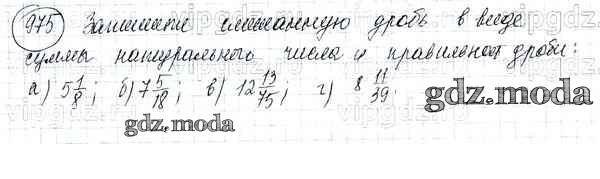 975 Запишите смешанную дробь в виде
суммы натурального числа и правильной дроби:
а) 5 1/8; б) 7 5/18; в) 12 13/75; г) 8 11/39.
gdz.moda
gdz.moda